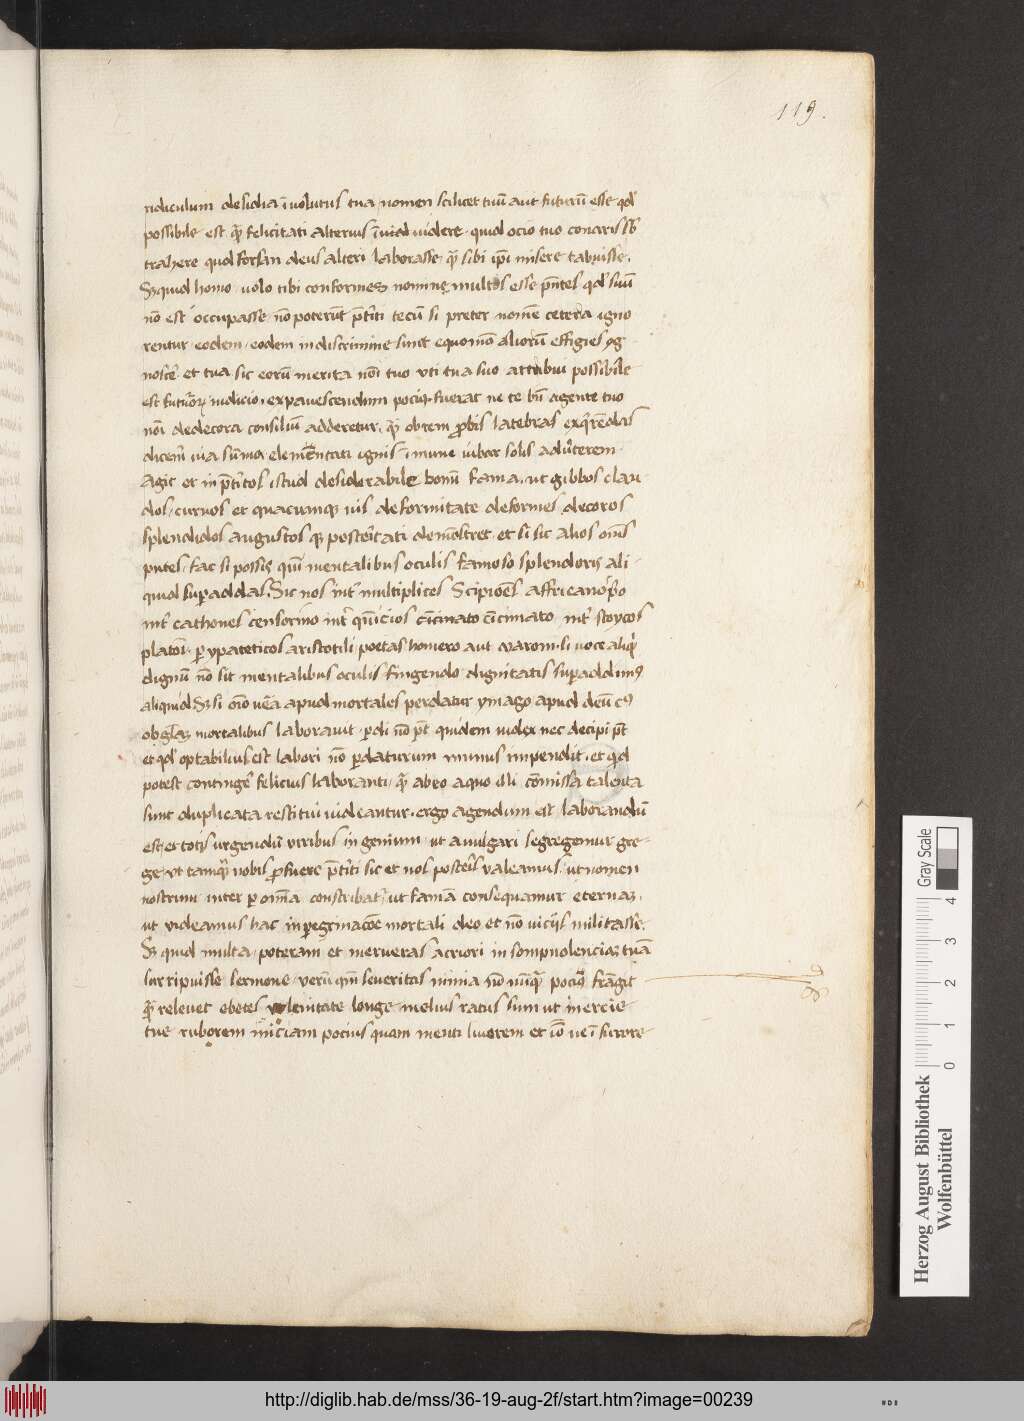 119.
ridiculum desidia īuolutus tua nomen scilicet tuū aut futurū esse qd'
possibile est qȝ felicitati alterius īuid uidere quod ocio tuo conaris
trahere quod forsan deus alteri laborasse qȝ sibi ip̄i misere tabuisse.
Sȝ quid homo uolo tibi conformes nomine multos esse p̄ntes qd' suū
nō est occupasse nō poterūt p̄titi tecū si preter nomē cetera igno
rentur eodem eodem indiscrimine sunt equo mō aliorū effigies yg
noscē et tua sic eorū merita nōi tuo uti tua suo attribui possibile
est futuroȝ iudicio expauescendum pociꝰ fuerat ne te bn̄ agente tuo
nōi dedecora consiliū adderetur
dicem uia suma elementati ignis imune iubar solis adulterem
Agit et istud desiderabile bonū fama ut gibbos clau
dos curuos et quacumqȝ uis deformitate deformes decoros
splendidos augustos qȝ posteritati demōstret et si sic alios om̄s
putes fac si possis qui mentalibus oculis famoso splendoris ali
quid supaddas Sic nos int' multiplices Scipiōes affricano
int' cathones censorino int' quincios cincinato int' stoycos
platoni pypateticos aristotili poetas homero aut maroni si uoce aliq'
dignū nō sit mentalibus oculis fingendo dignitatis supaddimꝰ
aliquid Sȝ si oīo apud mortales perdatur ymago apud deū
ob gl'aȝ mortalibus laborauit pdi nō p̄t quidem iudex nec decipi p̄t
et qd' optabilius est labori nō pdaturum munus impendit et qd
potest contingē felicius laboranti qȝ abeo a quo illi cōmissa talenta
sunt duplicata restitui uideantur ergo agendum est laborandū
est et totis urgendū uiribus ingenium ut a uulgari segregemur gre-
ge ut tamq̄ nobis pfuere p̄titi sic et nos posteris ualeamus ut nomen
nostrum inter p om̄ia conscribat' ut famā consequamur eternaȝ
ut uideamus hac in pegrinacōe mortali deo et nō uiciis militasse.
Sȝ quid multa poteram et merueras acriori in sompnolenciaȝ tuā
surripuisse sermone uerū qm̄ seueritas nimia nō nūq̄ pociꝰ frāgit
qȝ releuet ebetes lenitate longe melius ratus sum ut inercie
tue ruborem iniciam pocius quam menti liuorem et iō ne ī furore
Herzog August Bibliothek
Wolfenbüttel
0 1 2 3 4
Gray Scale
http://diglib.hab.de/mss/36-19-aug-2f/start.htm?image=00239